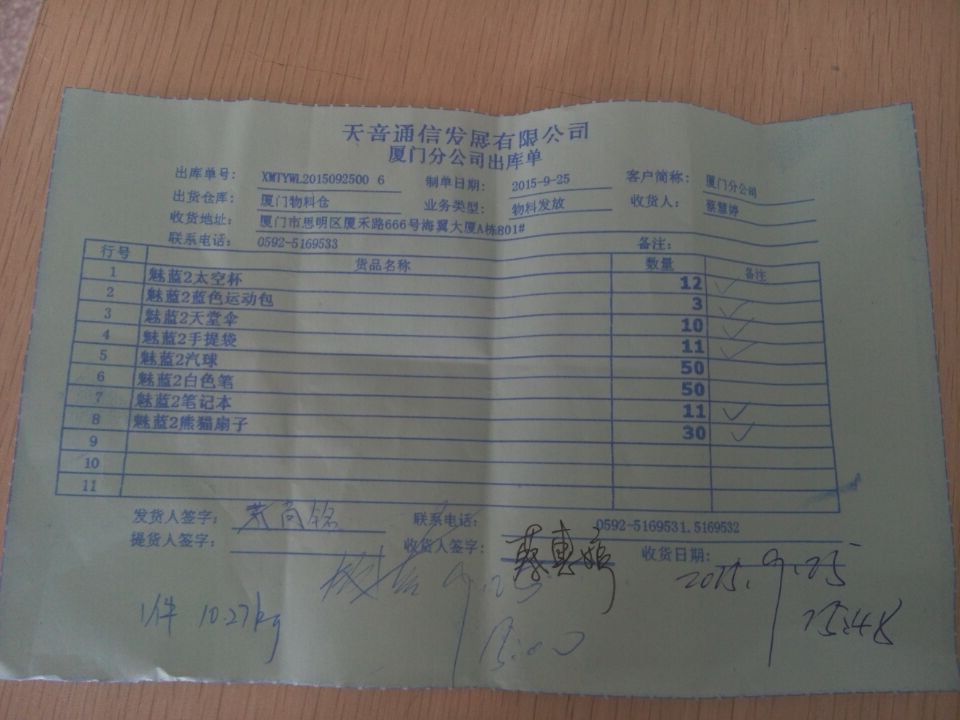 天音通信发展有限公司
厦门分公司出库单
出库单号： XMTYWL2015092500 6 制单日期： 2015-9-25 客户简称： 厦门分公司
出货仓库： 厦门物料仓 业务类型： 物料发放 收货人： 蔡慧婷
收货地址： 厦门市思明区厦禾路666号海翼大厦A栋801#
联系电话： 0592-5169533 备注：
行号 货品名称 数量 备注
1 魅蓝2太空杯 12 ✓
2 魅蓝2蓝色运动包 3 ✓
3 魅蓝2天堂伞 10 ✓
4 魅蓝2手提袋 11 ✓
5 魅蓝2汽球 50
6 魅蓝2白色笔 50
7 魅蓝2笔记本 11 ✓
8 魅蓝2熊猫扇子 30 ✓
9
10
11
发货人签字： 联系电话： 0592-5169531,5169532
提货人签字： 收货人签字： 收货日期：
9.25 2015.9.25
1件 10.27kg 15:00 15:48